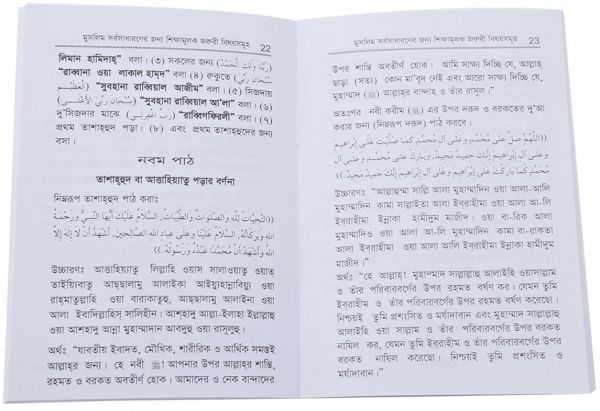 মুসলিম সর্বসাধারণের জন্য শিক্ষামূলক জরুরী বিষয়সমূহ
22
লিমান হামিদাহ্" বলা। (৩) সকলের জন্য (رَبَّنَا وَلَكَ الْحَمْدُ)
"রাব্বানা ওয়া লাকাল হাম্‌দ" বলা (৪) রুকুতে (سُبْحَانَ رَبِّيَ
الْعَظِيْمِ) "সুবহানা রাব্বিয়াল আযীম" বলা। (৫) সিজদায়
(سُبْحَانَ رَبِّيَ الْأَعْلَى) "সুবহানা রাব্বিয়াল আ'লা" বলা। (৬)
দু'সিজদার মাঝে (رَبِّ اغْفِرْلِيْ) "রাব্বিগফিরলী" বলা। (৭)
প্রথম তাশাহ্‌হুদ পড়া। (৮) এবং প্রথম তাশাহ্‌হুদের জন্য
বসা।
নবম পাঠ
তাশাহ্‌হুদ বা আত্তাহিয়্যাতু পড়ার বর্ণনা
নিম্নরূপ তাশাহ্‌হুদ পাঠ করাঃ
((التَّحِيَّاتُ لِلَّهِ وَالصَّلَوَاتُ وَالطَّيِّبَاتُ، السَّلَامُ عَلَيْكَ أَيُّهَا النَّبِيُّ وَرَحْمَةُ
اللهِ وَبَرَكَاتُهُ، السَّلَامُ عَلَيْنَا وَعَلَى عِبَادِ اللهِ الصَّالِحِيْنَ، أَشْهَدُ أَنْ لَا إِلَهَ إِلَّا اللهُ
وَأَشْهَدُ أَنَّ مُحَمَّدًا عَبْدُهُ وَرَسُوْلُهُ.))
উচ্চারণঃ আত্তাহিয়্যাতু লিল্লাহি ওয়াস সালাওয়াতু ওয়াত্
তাইয়্যিবাতু আচ্ছালামু আলাইকা আইয়্যুহান্নাবিয়্যু ওয়া
রাহ্‌মাতুল্লাহি ওয়া বারাকাতুহু, আচ্ছালামু আলাইনা ওয়া
আলা ইবাদিল্লাহিস্ সালিহীন। আশ্‌হাদু আল্লা-ইলাহা ইল্লাল্লাহু
ওয়া আশহাদু আন্না মুহাম্মাদান আবদুহু ওয়া রাসূলুহু।
অর্থঃ "যাবতীয় ইবাদত, মৌখিক, শারীরিক ও আর্থিক সমস্তই
আল্লাহ্‌র জন্য। হে নবী ﷺ! আপনার উপর আল্লাহর শান্তি,
রহমত ও বরকত অবতীর্ণ হোক। আমাদের ও নেক বান্দাদের
মুসলিম সর্বসাধারণের জন্য শিক্ষামূলক জরুরী বিষয়সমূহ
23
উপর শান্তি অবতীর্ণ হোক। আমি সাক্ষ্য দিচ্ছি যে, আল্লাহ
ছাড়া (সত্য) কোন মা'বূদ নেই এবং আরো সাক্ষ্য দিচ্ছি যে,
মুহাম্মাদ (ﷺ) আল্লাহর বান্দাহ ও তাঁর রাসূল।"
অতঃপর নবী করীম (ﷺ) এর উপর দরূদ ও বরকতের দু'আ
করার জন্য (নিম্নরূপ দরূদ) পাঠ করবে।
((اللَّهُمَّ صَلِّ عَلَى مُحَمَّدٍ وَعَلَى آلِ مُحَمَّدٍ كَمَا صَلَّيْتَ عَلَى
إِبْرَاهِيْمَ وَعَلَى آلِ إِبْرَاهِيْمَ إِنَّكَ حَمِيْدٌ مَجِيْدٌ، وَبَارِكْ عَلَى مُحَمَّدٍ وَعَلَى
آلِ مُحَمَّدٍ كَمَا بَارَكْتَ عَلَى إِبْرَاهِيْمَ وَعَلَى آلِ إِبْرَاهِيْمَ إِنَّكَ حَمِيْدٌ مَجِيْدٌ.))
উচ্চারণঃ "আল্লাহুম্মা সাল্লি আলা মুহাম্মাদিন ওয়া আলা-আলি
মুহাম্মাদিন কামা সাল্লাইতা আলা ইব্‌রাহীমা ওয়া আলা আলি
ইবরাহীমা ইন্নাকা হামীদুম মাজীদ। ওয়া বা-রিক আলা
মুহাম্মাদিন ওয়া আলা আলি মুহাম্মাদিন কামা বা-রাকতা
আলা ইবরাহীমা ওয়া আলা আলি ইবরাহীমা ইন্নাকা হামীদুম
মাজীদ।"
অর্থঃ "হে আল্লাহ! মুহাম্মাদ সাল্লাল্লাহু আলাইহি ওয়াসাল্লাম
ও তাঁর পরিবারবর্গের উপর রহমত বর্ষণ কর। যেমন তুমি
ইব্‌রাহীম ও তাঁর পরিবারবর্গের উপর রহমত বর্ষণ করেছো।
নিশ্চয়ই তুমি প্রশংসিত ও মর্যাদাবান এবং মুহাম্মাদ সাল্লাল্লাহু
আলাইহি ওয়া সাল্লাম ও তাঁর পরিবারবর্গের উপর বরকত
নাযিল কর, যেমন তুমি ইবরাহীম ও তাঁর পরিবারবর্গের উপর
বরকত নাযিল করেছো। নিশ্চয়ই তুমি প্রশংসিত ও
মর্যাদাবান।"